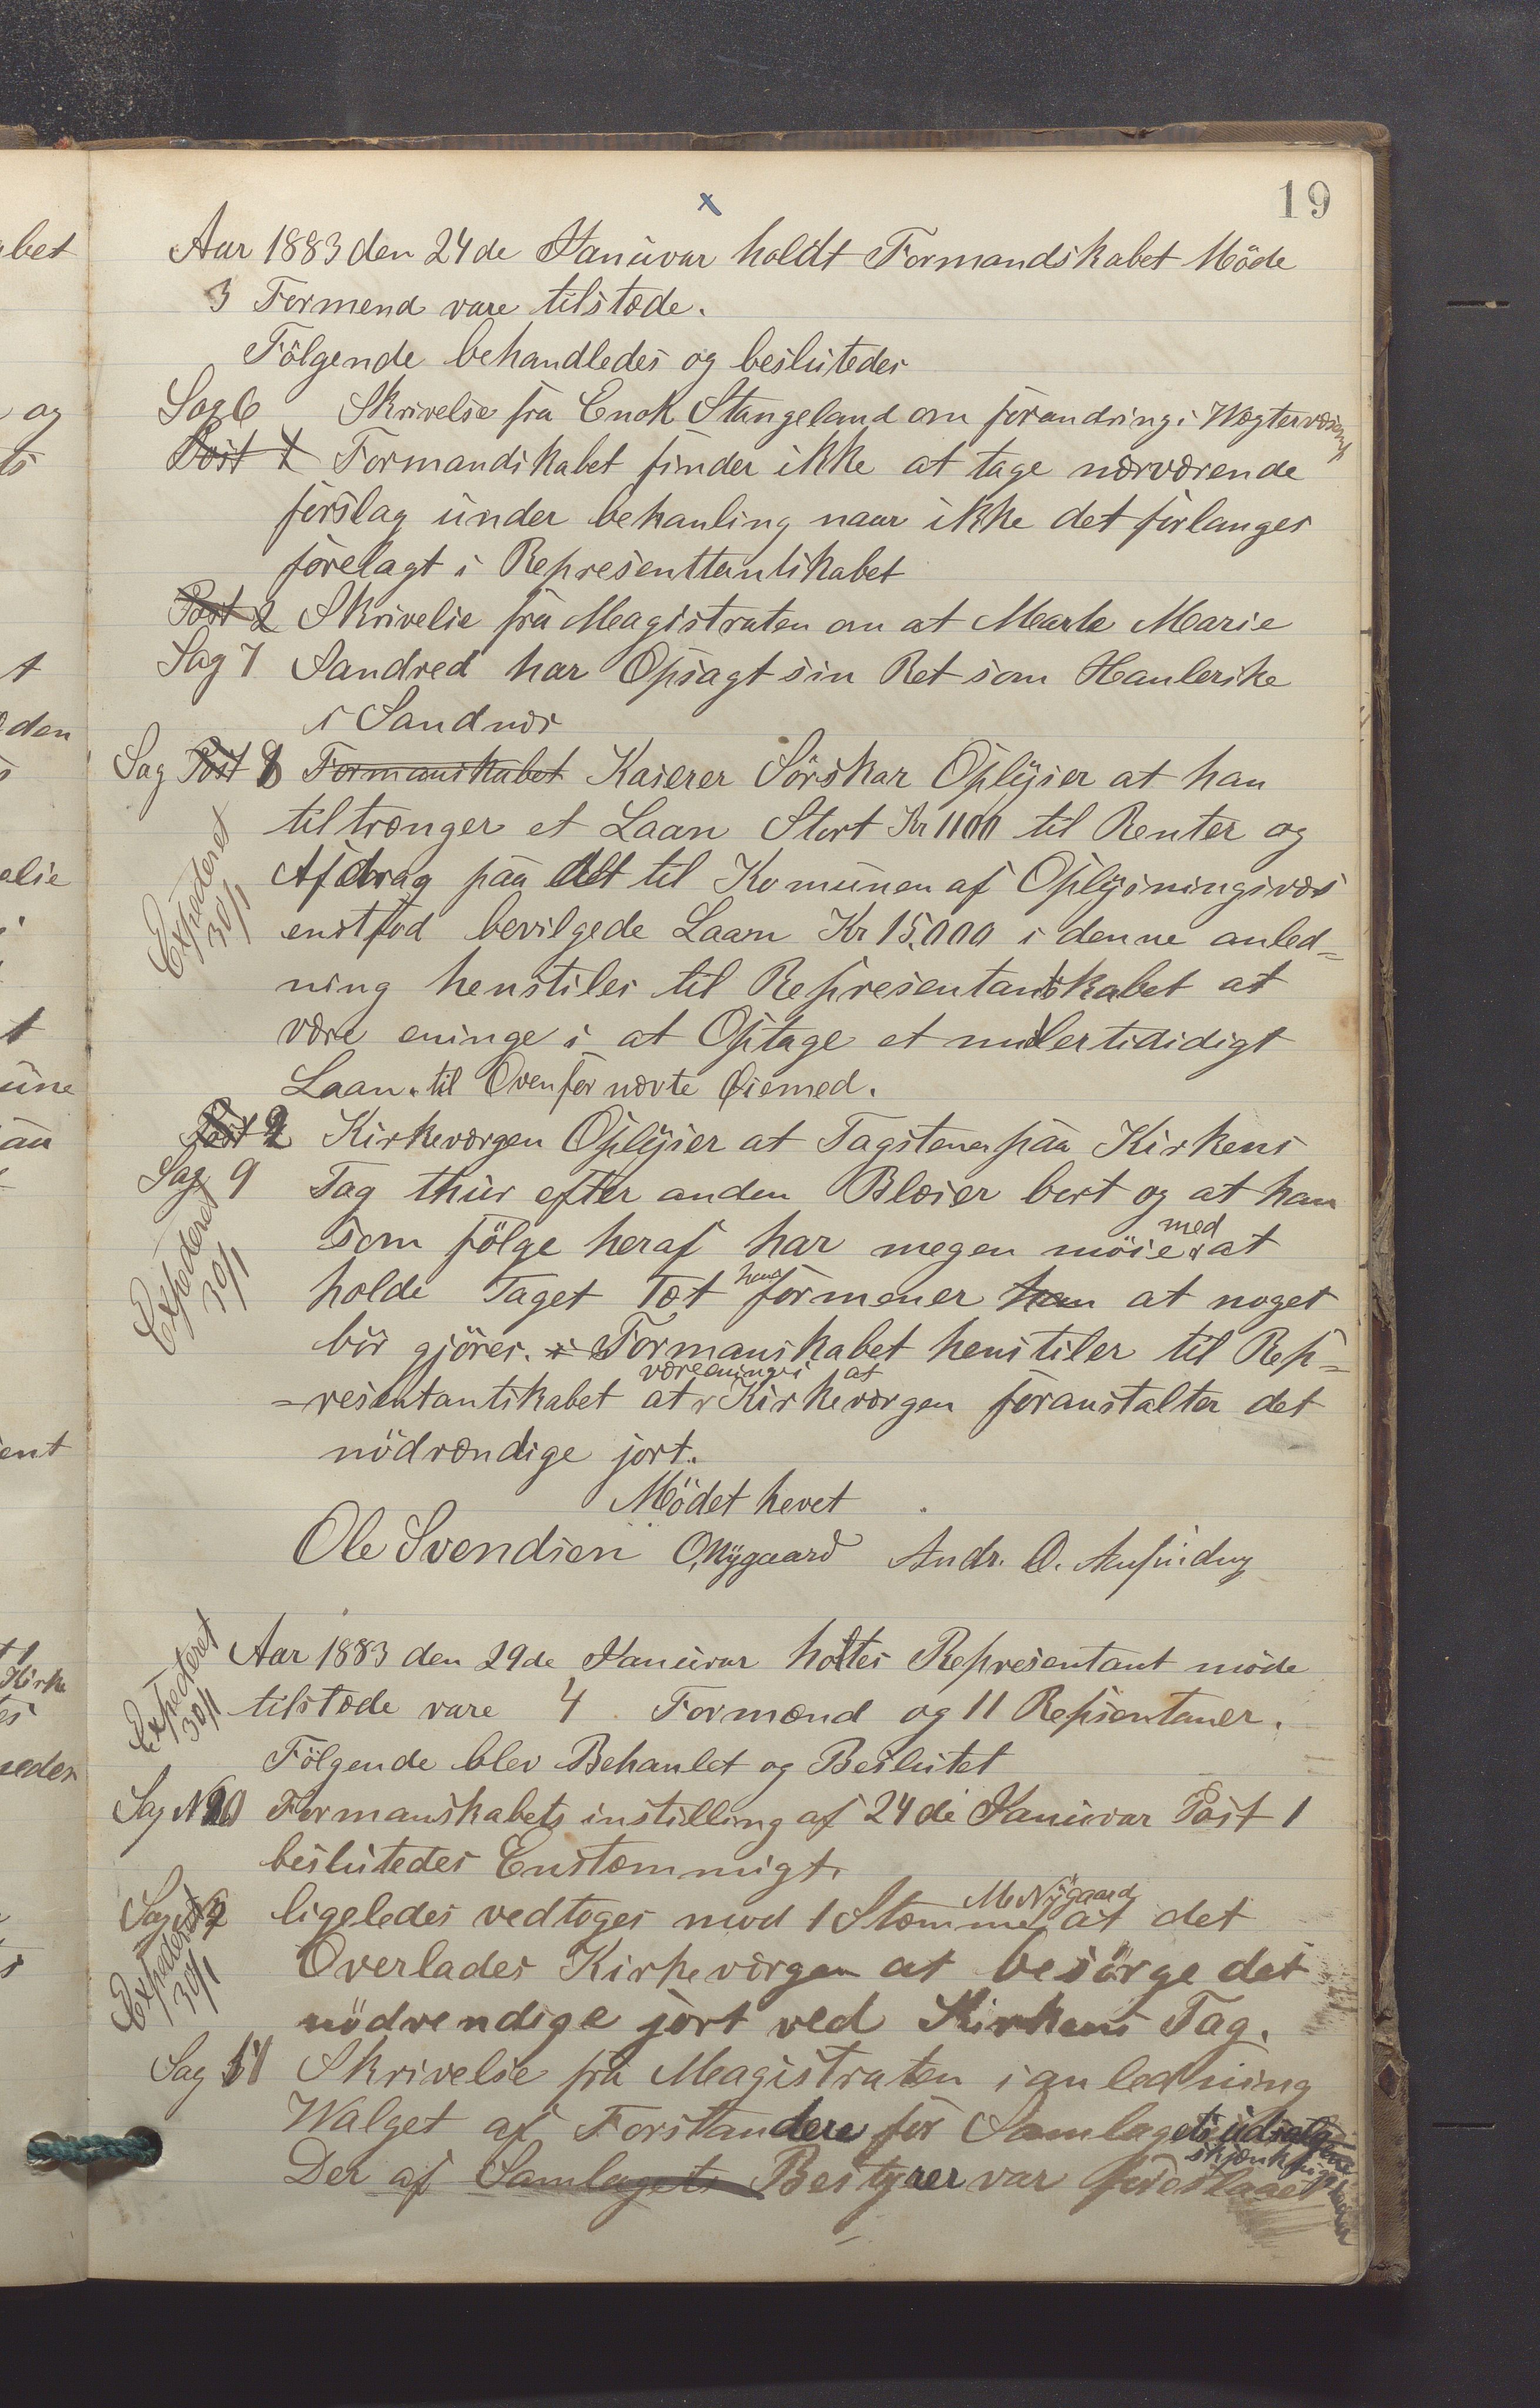 19
x
Aar 1883 den 24de Januvar holdt Formandskabet Möde
3 Formend vare tilstede.
Fölgende behandledes og beslutedes
Sag 6 Skrivelse fra Enok Stangeland om forandring i Wægtervæsenet
Post 1 Formandskabet finder ikke at tage nærværende
forslag under behanling naar ikke det forlanges
forelagt i Representtantskabet
Post 2 Skrivelse fra Magistraten om at Marte Marie
Sag 7 Sandred har Opsagt sin Ret som Hanlerske
i Sandnæs
Sag Post 8 Formanskabet Kaserer Sörskar Oplyser at han
tiltrænger et Laan Stort Kr 1100 til Renter og
Afdrag paa det til Komunen af Oplysningsvæs
enstfod bevilgede Laan Kr 15,000 i denne anled=
ning henstiles til Representanskabet at
være eninge i at Optage et midlertididigt
Laan til Ovenfor nævte Øiemed.
Expederet
30/1
Post 2 Kirkeværgen Oplyser at Tagstenen paa Kirkens
Sag 9 Tag thur efter anden Blæser bort og at han
som fölge heraf har megen möie med at
holde Taget Tæt han formener han at noget
bör gjöres. Formanskabet henstiler til Rep=
=resentantskabet at være eninge i at Kirkeværgen foranstalter det
nödvændige jort.
Expederet
30/1
Mödet hevet
Ole Svendsen O. Nygaard Andr. O.
Aar 1883 den 29de Januvar holtes Representant möde
tilstede vare 4 Formænd og 11 Repsentaner.
Expederet
30/1
Fölgende blev Behanlet og Beslutet
Sag N 10 Formanskabets instilling af 24de Januvar Post 1
beslutedes Enstemmigt.
Sag 2 ligeledes vedtoges mod 1 Stemme M Nygaard at det
Overlades Kirkeværgen at besörge det
nödvendige jort ved Kirkens Tag.
Expederet
30/1
Sag 11 Skrivelse fra Magistraten i anledning
Walget af Forstandere for Samlagets udsalg
Der af Samlagets Bestyrer var foreslaaet